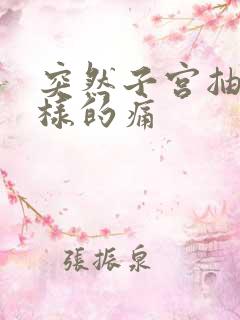 突然子宫抽
样的痛
張振泉